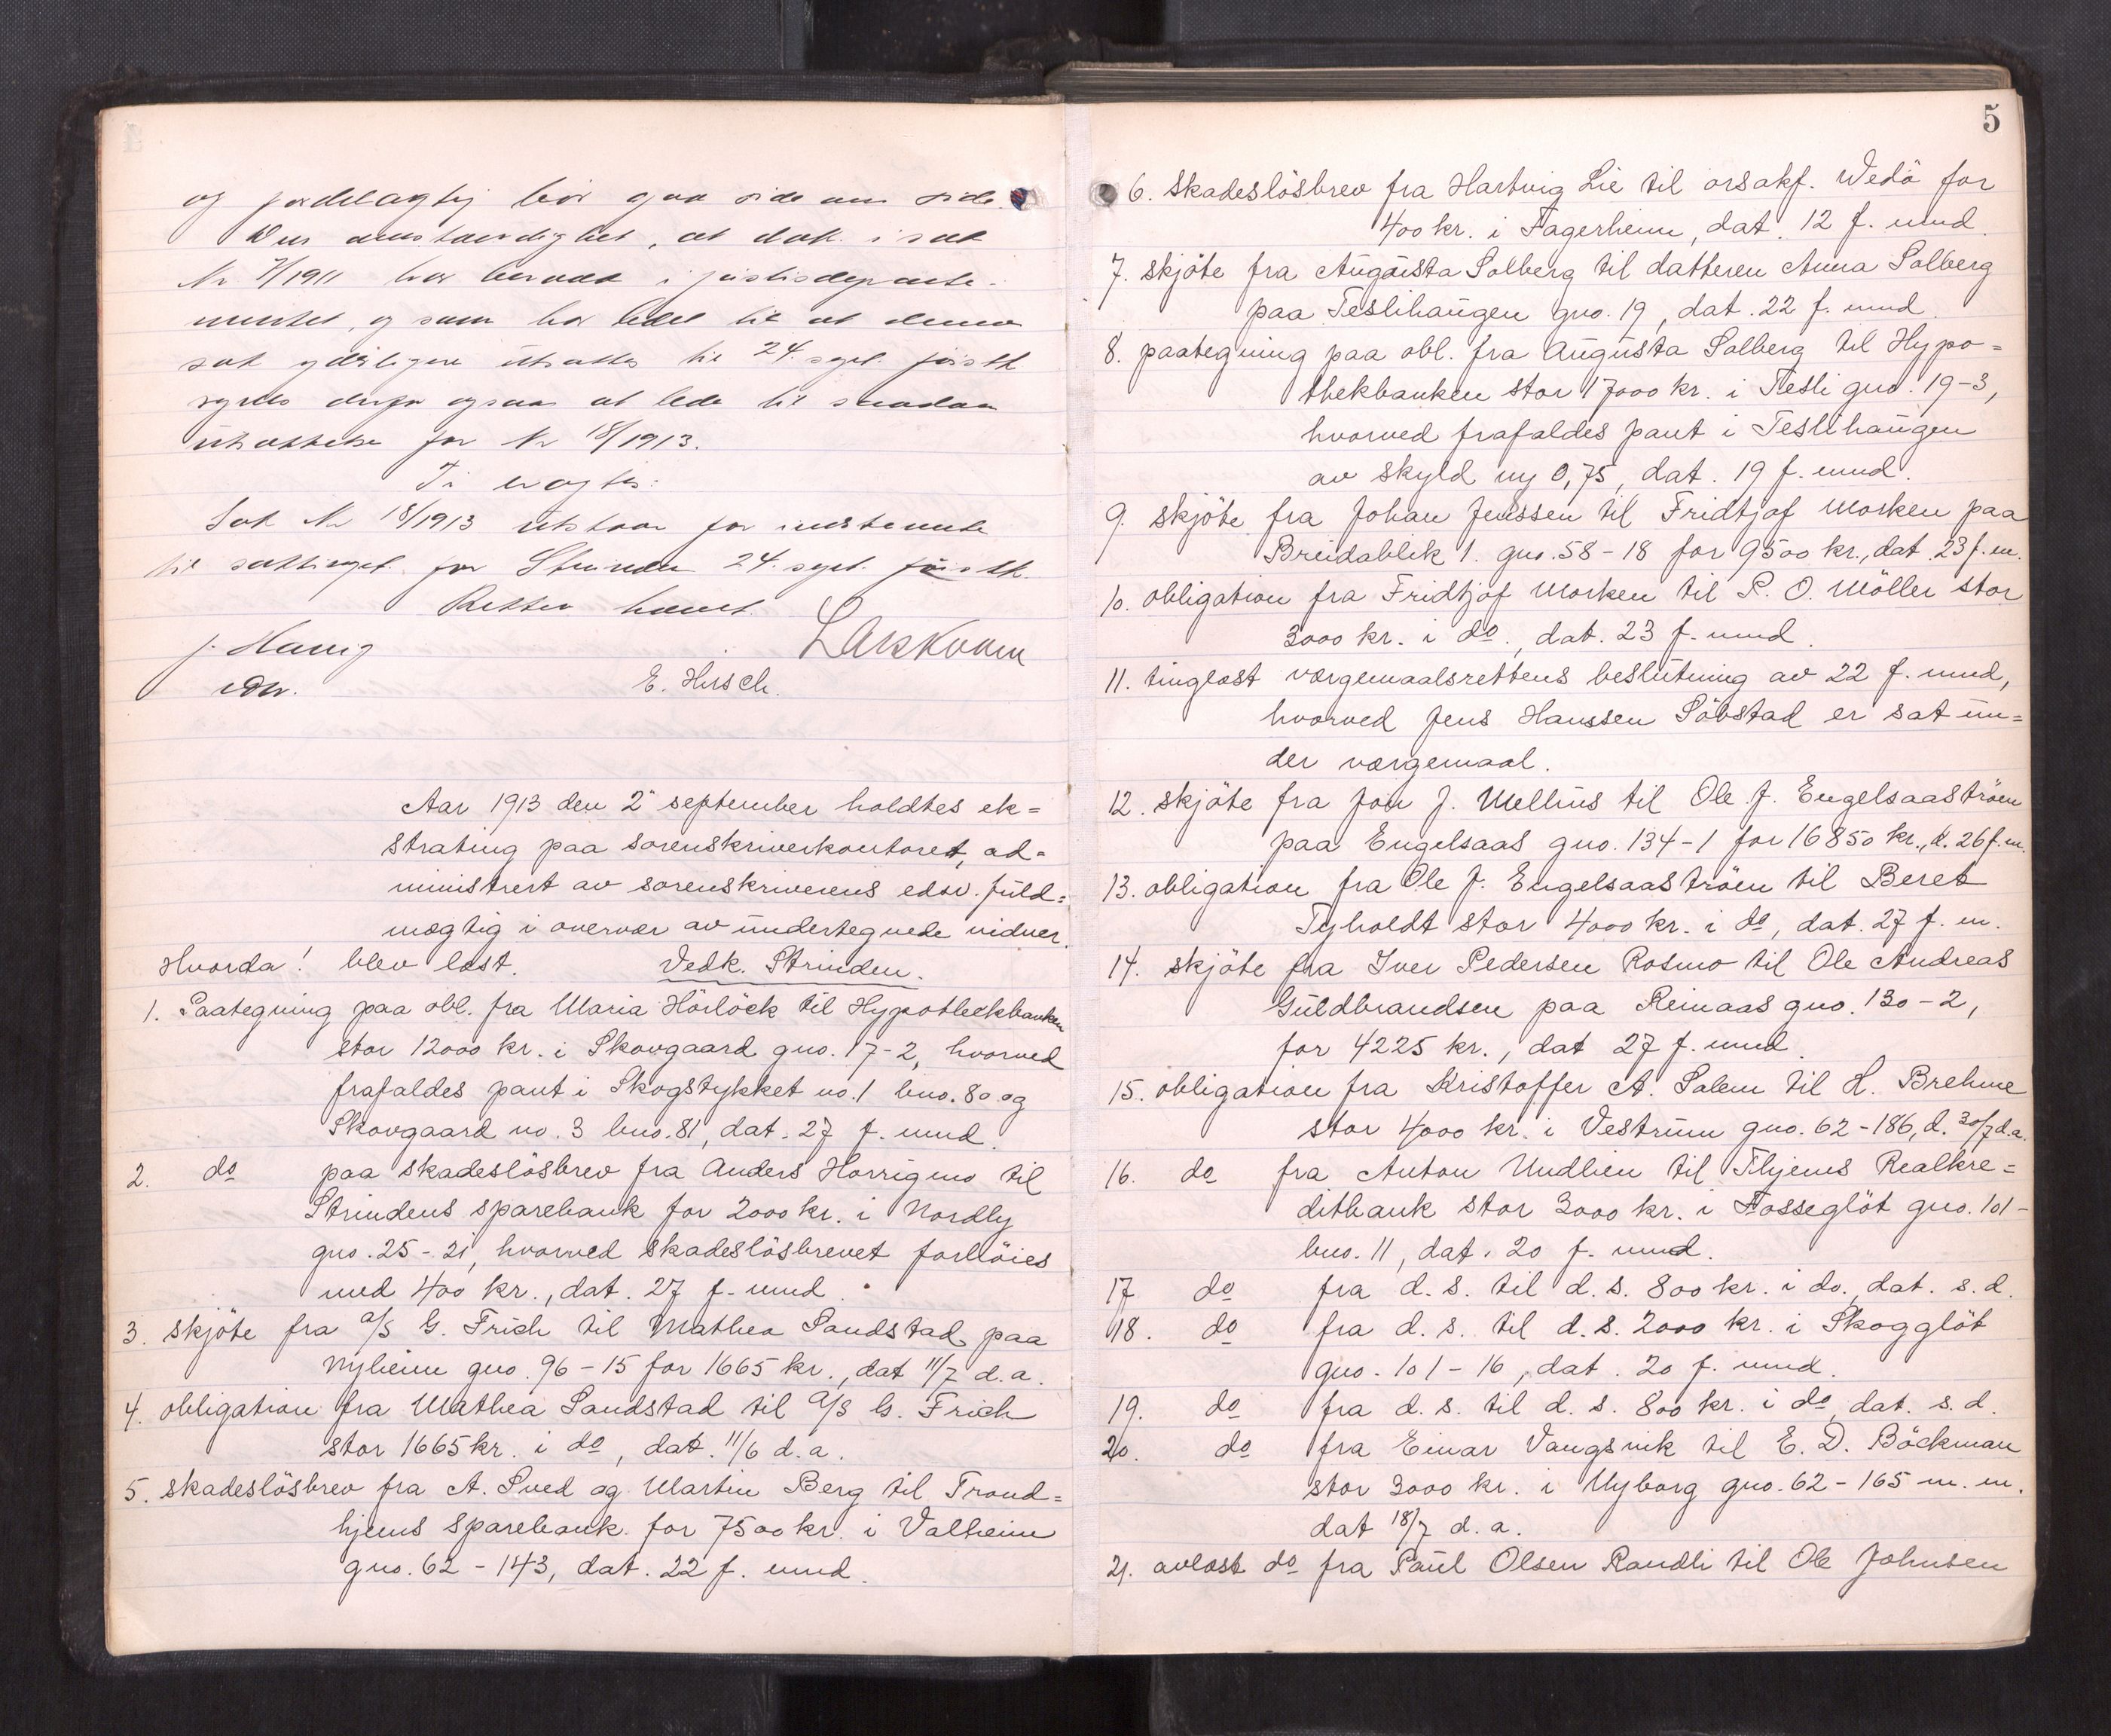 og fordelagtig bør gaa side om side.
Den omstændighet, at dok. i sak
Nr 7/1911 har beroet i justisdeparte-
mentet, og som har ledet til at denne
sak yderligere utsattes til 24. sept. førstk
synes derfor ogsaa at lede til saadan
utsættelse for Nr 18/1913.
Ti eragtes:
Sak Nr 18/1913 utstaar for indstevnte
til saktinget for Strinden 24. sept. førstk.
Retten hævet.
J. Havig
edsv.
E. Hirsch.
Aar 1913 den 2 september holdtes ek=
strating paa sorenskriverkontoret, ad=
ministrert av sorenskriverens edsv. fuld=
mægtig i overvær av undertegnede vidner.
Hvorda! blev læst. Vedk. Strinden.
1. Paategning paa obl. fra Maria Hörlöck til Hypothekbanken
stor 12000 kr. i Skovgaard gno. 17-2, hvorved
frafaldes pant i Skogstykket no. 1 bno. 80 og
Skovgaard no. 3 bno. 81, dat. 27 f. mnd.
2. do paa skadeslösbrev fra Anders Horrigmo til
Strindens sparebank for 2000 kr. i Nordly
gno. 25-21, hvorved skadeslösbrevet forhöies
med 400 kr., dat. 27 f. mnd.
3. skjöte fra a/s G. Frich til Mathea Sandstad paa
Nyheim gno. 96-15 for 1665 kr., dat 11/7 d.a.
4. obligation fra Mathea Sandstad til a/s G. Frich
stor 1665 kr. i do, dat. 11/6 d.a.
5. skadeslösbrev fra A. Sved og Martin Berg til Trond=
hjems sparebank for 7500 kr. i Valheim
gno. 62-143, dat. 22 f. mnd.
5
6. skadeslösbrev fra Hartvig Lie til orsakf. Wedö for
400 kr. i Fagerheim, dat. 12 f. mnd.
7. skjöte fra Augusta Solberg til datteren Anna Solberg
paa Teslihaugen gno. 19, dat. 22 f. mnd.
8. paategning paa obl. fra Augusta Solberg til Hypo=
thekbanken stor 17000 kr. i Tesli gno. 19-3,
hvorved frafaldes pant i Teslihaugen
av skyld ny 0,75, dat. 19 f. mnd.
9. skjöte fra Johan Jenssen til Fridtjof Morken paa
Breidablik 1. gno. 58-18 for 9500 kr., dat. 23 f.m.
10. obligation fra Fridtjof Morken til P. O. Möller stor
3000 kr. i do., dat. 23 f. mnd.
11. tinglæst værgemaalsrettens beslutning av 22 f. mnd,
hvorved Jens Hanssen Söbstad er sat un=
der værgemaal.
12. skjöte fra Jon J. Mellius til Ole J. Engelsaaströen
paa Engelsaas gno. 134-1 for 16850 kr., d. 26 f.m.
13. obligation fra Ole J. Engelsaaströen til Beret
Tyholdt stor 4000 kr. i do, dat. 27 f. m.
14. skjöte fra Iver Pedersen Rosmo til Ole Andreas
Guldbrandsen paa Reinaas gno. 130-2,
for 4225 kr., dat 27 f. mnd.
15. obligation fra Kristoffer A. Salem til H. Brehme
stor 4000 kr. i Vestrum gno. 62-186, d. 30/7 d.a.
16. do fra Anton Undlien til Thjems Realkre=
ditbank stor 3000 kr. i Fosseglöt gno. 101-
bno. 11, dat. 20 f. mnd.
17 do fra d. s. til d. s. 800 kr. i do., dat. s. d.
18. do fra d. s. til d. s. 2000 kr. i Skogglöt
gno. 101-16, dat. 20 f. mnd.
19. do fra d. s. til d. s. 800 kr. i do, dat. s. d.
20. do fra Einar Vangsvik til E. D. Böckman
stor 3000 kr. i Nyborg gno. 62-165 m. m.
dat 18/7 d. a.
21. avlæst do fra Paul Olsen Randli til Ole Johnsen